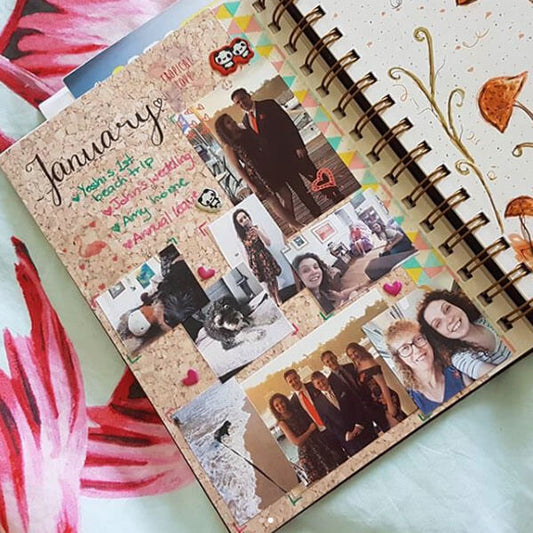 January
Yoshi's 1st
beach trip
John's wedding
Amy home
Annual leave